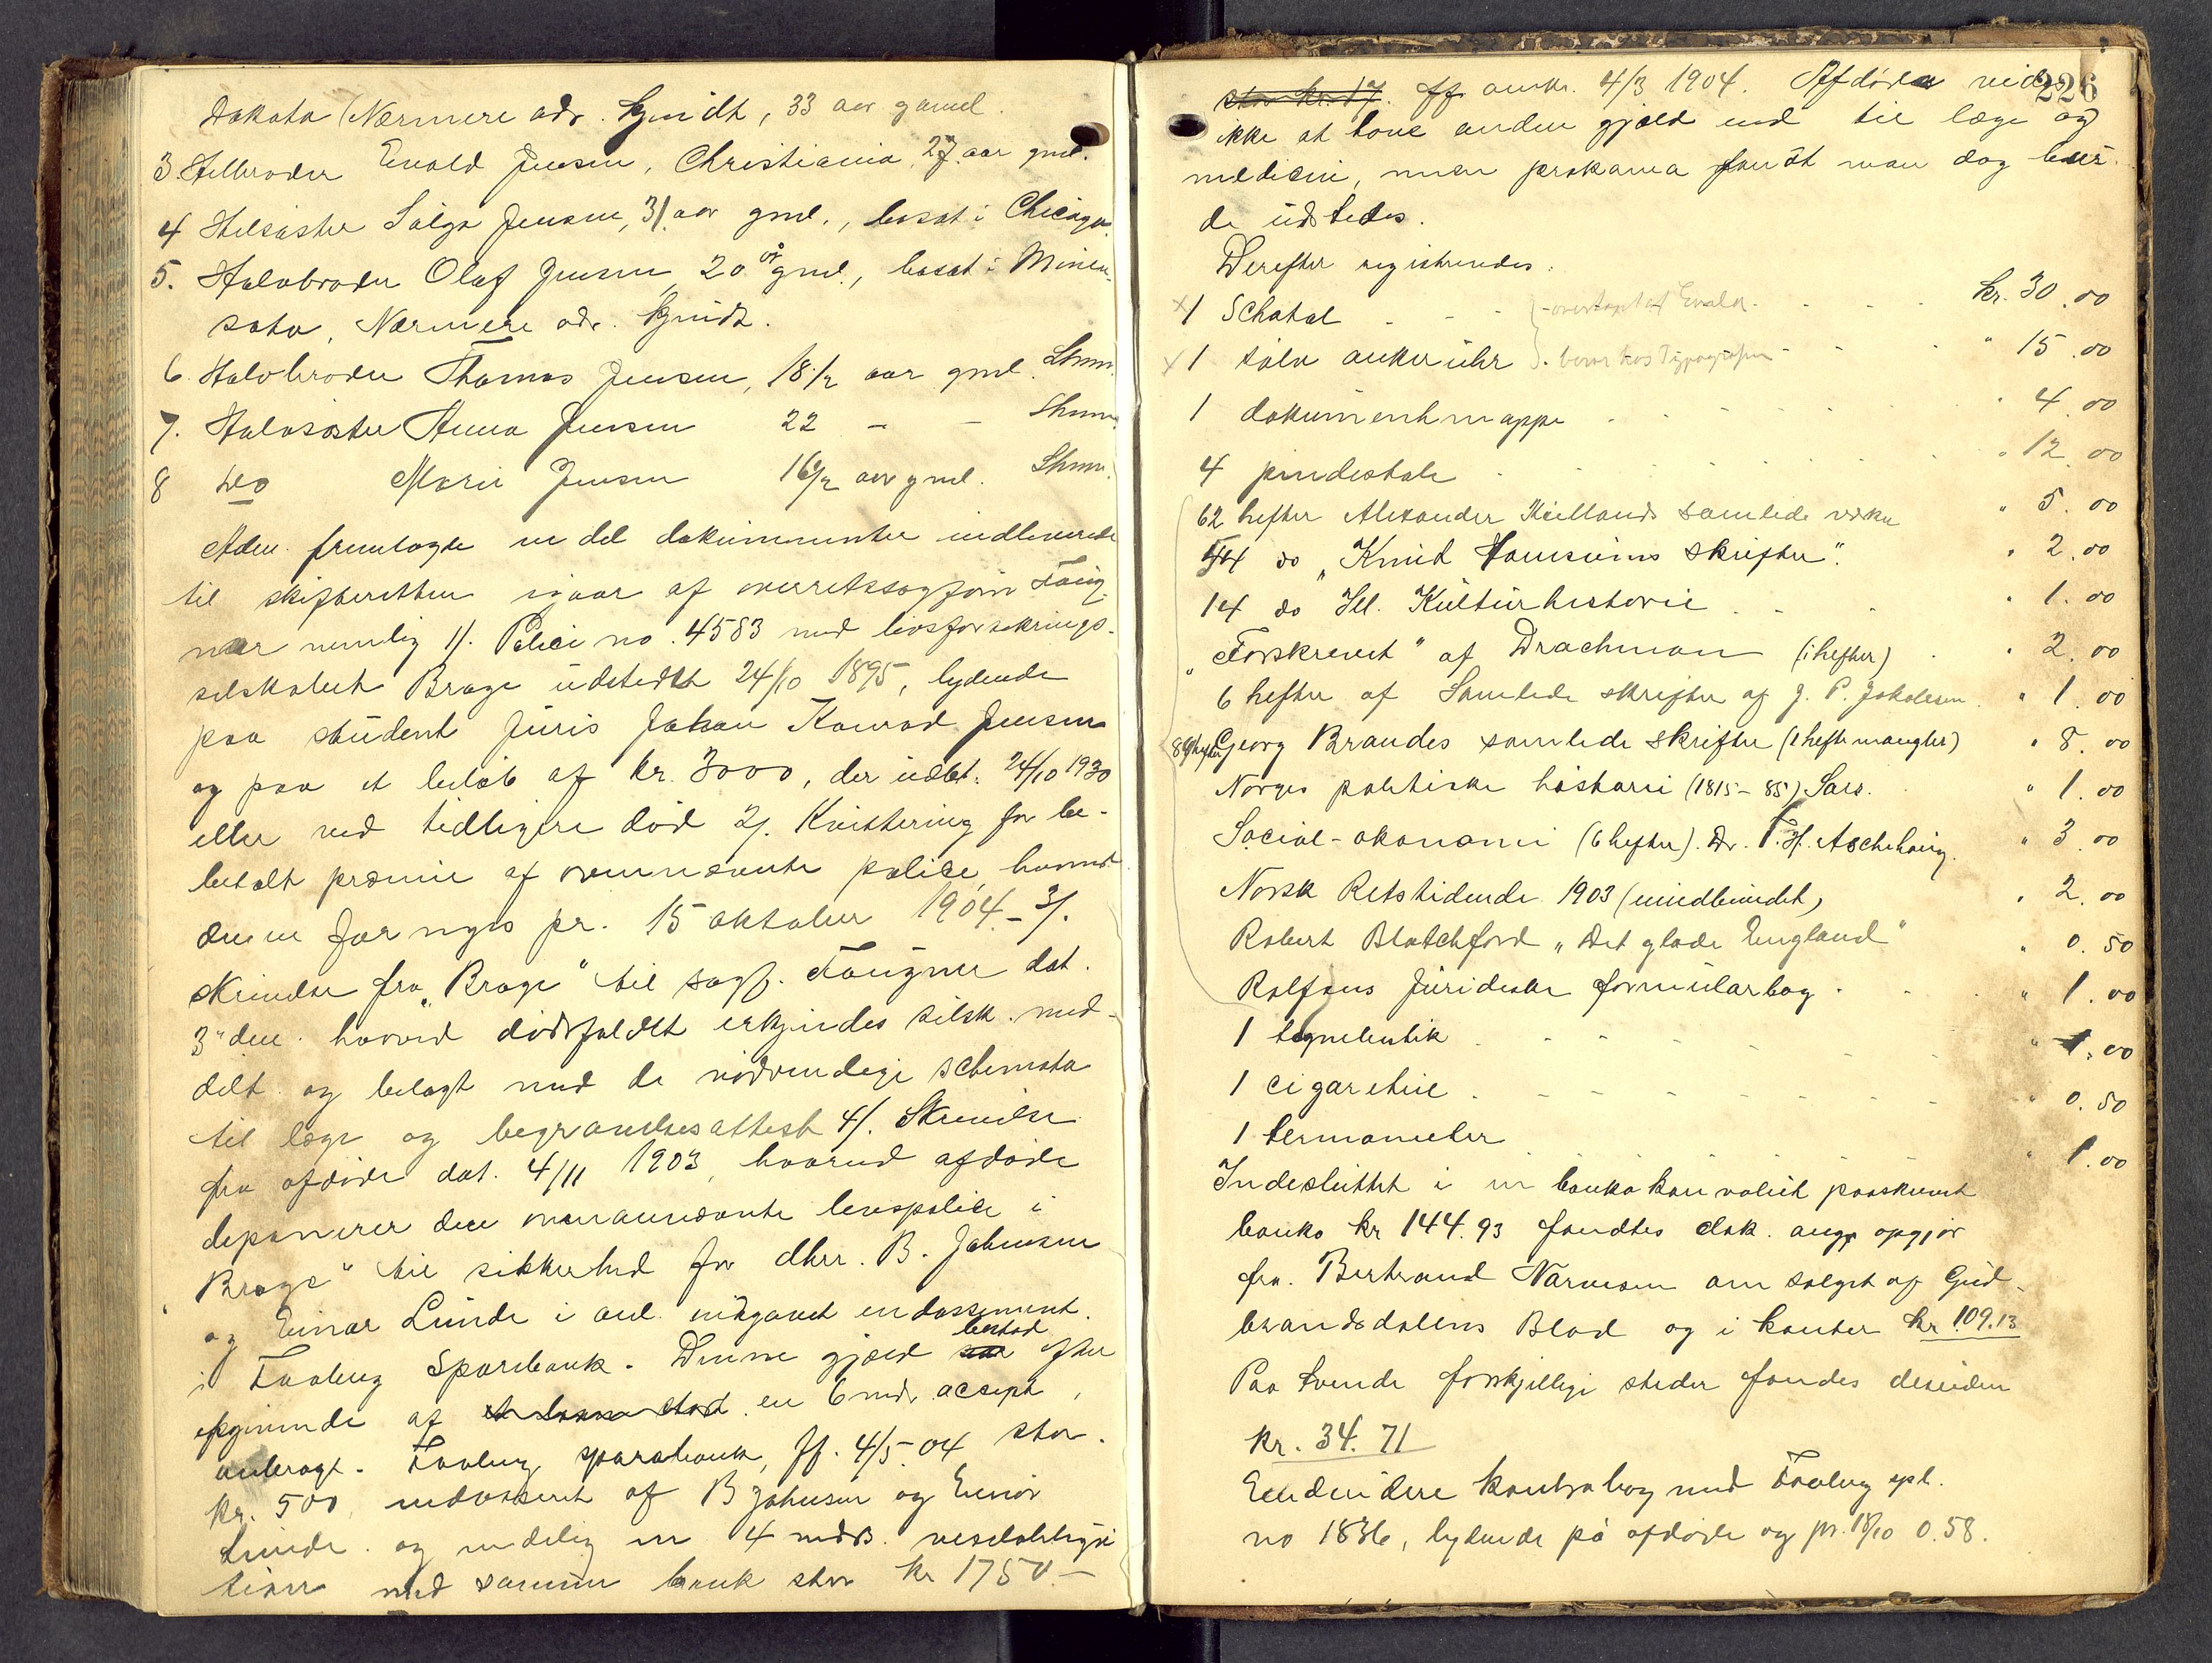 Dakota (Nærmere adr. kjendt, 33 aar gamel.
3. Helbroder Evald Jensen, Christiania, 27 aar gml.
4 Helsøster Solga Jensen, 31 aar gml., bosat i Chicago
5. Halvbroder Olaf Jensen, 20 år gml., bosat i Minne-
sota, Nærmere adr. kjendt.
6. Halvbroder Thomas Jensen, 18½ aar gml. Lhmr.
7. Halvsøster Anna Jensen 22 - - Lhmr.
8 do Marie Jensen 16½ aar gml. Lhmr.
Adm. fremlagde en del dokumenter indleverede
til skifteretten igaar af overretssagfører Faug-
ner nemlig 1). Police no. 4583 med livsforsikrings-
selskabet Brage udstedt 24/10 1895, lydende
paa student juris Johan Konrad Jensen
og paa et beløb af kr. 3000, der udbt. 24/10 1930
eller ved tidligere død 2). Kvittering for be-
betalt præmie af ovennævnte police, hvorved
denne fornyes pr. 15 oktober 1904 - 3).
Skrivelse fra "Brage" til sagf. Faugner dat.
3 den hvorved dødsfaldet erkjendes selsk. med-
delt og belagt med de nødvendige schemata
til læge og begravelsesattest 4). Skrivelse
fra afdøde dat. 4/11 1903, hvorved afdøde
deponerer den ovennævnte livspolice i
"Brage" til sikkerhed for dhrr. B. Johnsen
og Einar Lunde i anl. indgaaet endossement
i Faaberg Sparebank. Denne gjæld bestod efter
opgivende af en 6 mdr. accept,
anbragt. Faaberg sparebank, ff. 4/5 04 stor.
kr. 500, endosseret af B Johnsen og Einar
Lunde. og endelig en 4 mdrs. vexelobliga
tion med samme bank stor kr 1750.-
226
stor kr. 17. ff. 4/3 1904. Afdøde vides
ikke at have anden gjæld end til læge og
medicin, men proklama fandt man dog bur-
de udstedes.
Derefter registreredes:
x 1 Schatal - - - overtaget af Evald - - kr. 30.00
x 1 sølv ankeruhr . beror hos Typografen - - " 15.00
1 dokumentmappe " 4.00
4 pindestole " 12.00
62 hefter Alexander Kiellands samlede værker " 5.00
44 do "Knud Hamsuns skrifter". " 2.00
14 do Ill. Kulturhistorie " 1.00
"Forskrevet" af Drachman (i hefter) " 2.00
6 hefter af Samlede skrifter af J. P. Jakobsen " 1.00
89 hefter Georg Brandes samlede skrifter (1 hefte mangler) " 8.00
Norges politiske historie (1815-85) Sars. " 1.00
Social-økonomi (6 hefter). Dr. T. H. Aschehoug. " 3.00
Norsk Retstidende 1903 (uindbundet) " 2.00
Robert Blatchford "Det glade England" " 0.50
Rolfsens Juridiske formularbog " 1.00
1 tegnebestik " 1.00
1 cigaretui " 0.50
1 termometer " 1.00
Indesluttet i en konvolut paaskrevet
banko kr 144.93 fandtes dok. ang. opgjør
fra Bertrand Narvesen om salget af Gud-
brandsdalens Blad og i kontter kr 109.13
Paa tvende forskjellige steder fandes desuden
kr. 34.71
Endvidere kontrabog med Faaberg spb.
no 1836, lydende på afdøde og pr. 18/10 0.58.